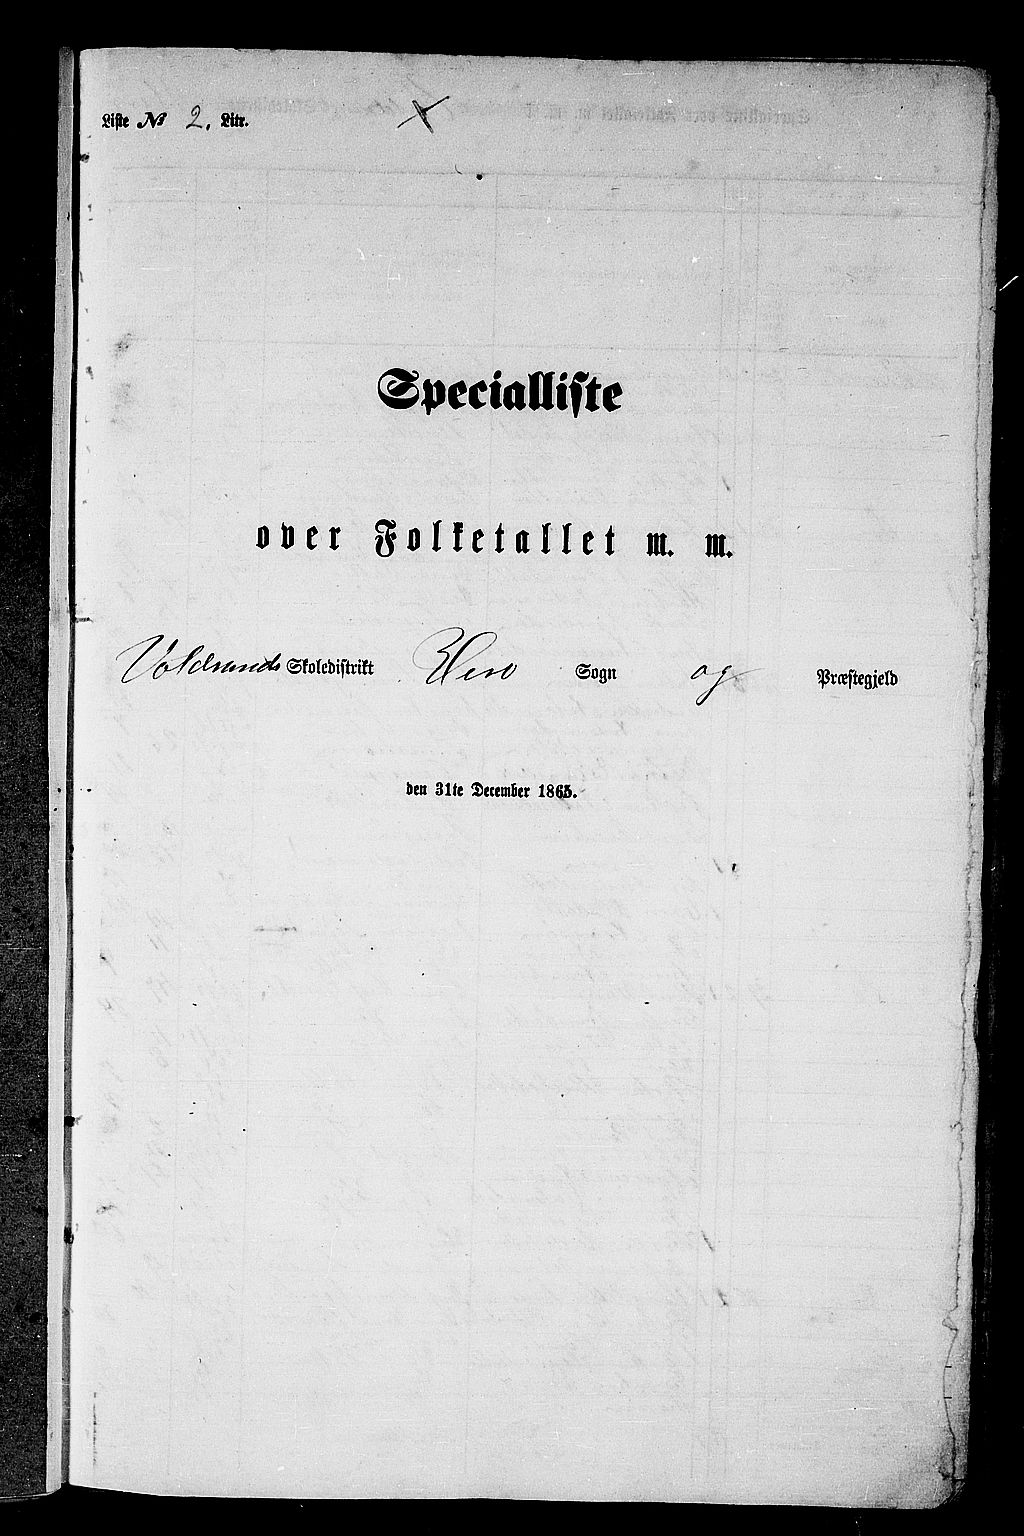 Liste № 2. Litr.
Specialliste
over Folketallet m. m.
Voldsunds Skoledistrikt Herø Sogn og Præstegjeld
den 31te December 1865.